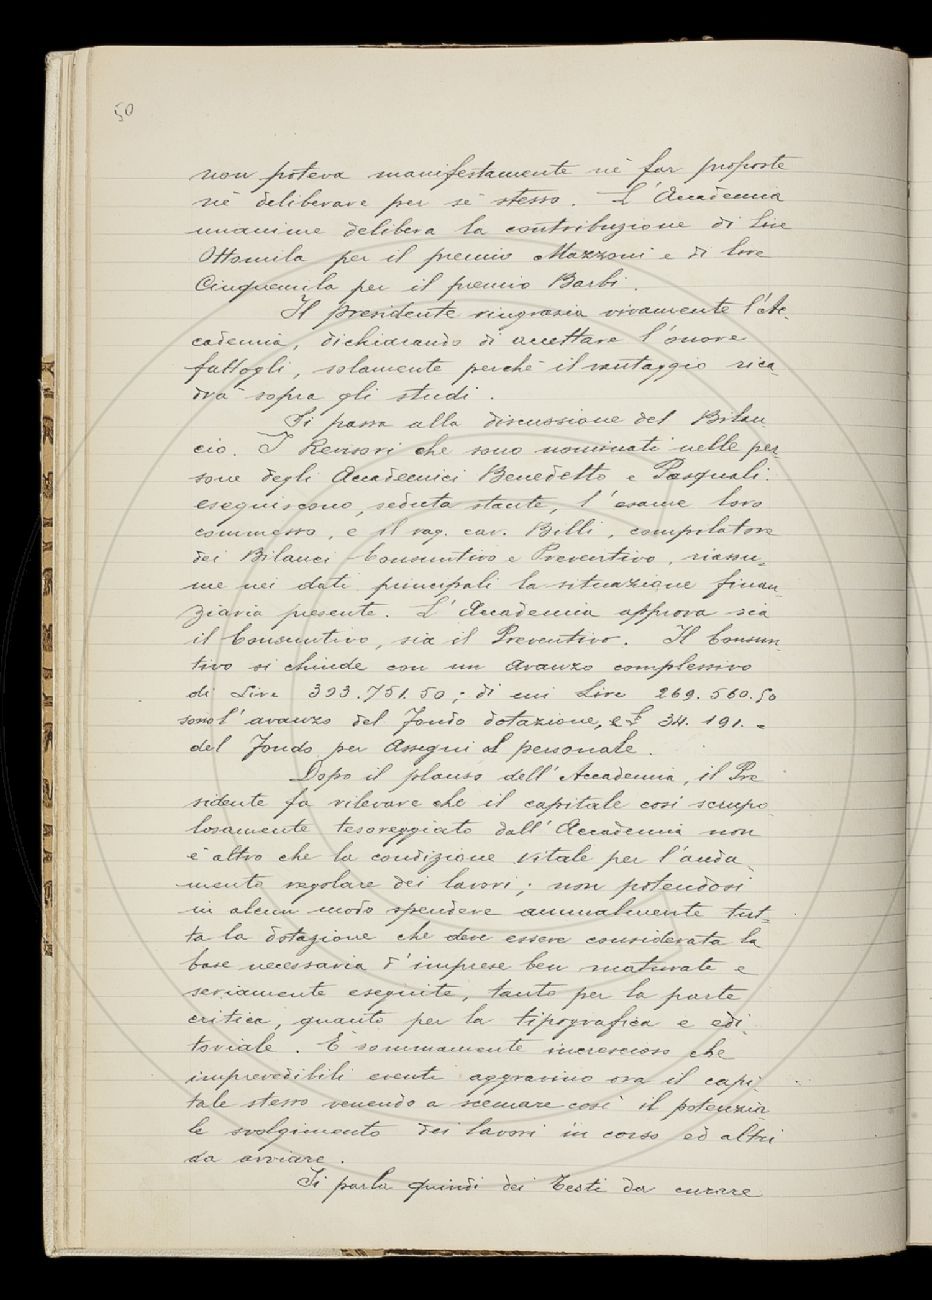 50
non poteva manifestamente nè far proposte
nè deliberare per sè stesso. L'Accademia
unanime delibera la contribuzione di Lire
Ottomila per il premio Mazzoni e di Lire
Cinquemila per il premio Barbi.
Il presidente ringrazia vivamente l'Ac-
cademia, dichiarando di accettare l'onore
fattogli, solamente perchè il vantaggio rica
drà sopra gli studi.
Si passa alla discussione del Bilan
cio. I Revisori che sono nominati nelle per-
sone degli Accademici Benedetto e Pasquali
eseguiscono, seduta stante, l'esame loro
commesso, e il rag. cav. Billi, compilatore
dei Bilanci Consuntivo e Preventivo, riassu-
me nei dati principali la situazione finan
ziaria presente. L'Accademia approva sia
il Consuntivo, sia il Preventivo. Il Consun-
tivo si chiude con un avanzo complessivo
di Lire 303.751.50; di cui Lire 269.560.50
sono l'avanzo del Fondo dotazione, e £ 34.191.-
del Fondo per Assegni al personale.
Dopo il plauso dell'Accademia, il Pre
sidente fa rilevare che il capitale così scrupo
losamente tesoreggiato dall'Accademia non
è altro che la condizione vitale per l'anda
mento regolare dei lavori; non potendosi
in alcun modo spendere annualmente tut-
ta la dotazione che deve essere considerata la
base necessaria d'imprese ben maturate e
seriamente eseguite, tanto per la parte
critica, quanto per la tipografica e edi
toriale. È sommamente increscioso che
imprevedibili eventi aggravino ora il capi
tale stesso venendo a scemare così il potenzia
le svolgimento dei lavori in corso ed altri
da avviare.
Si parla quindi dei Testi da curare